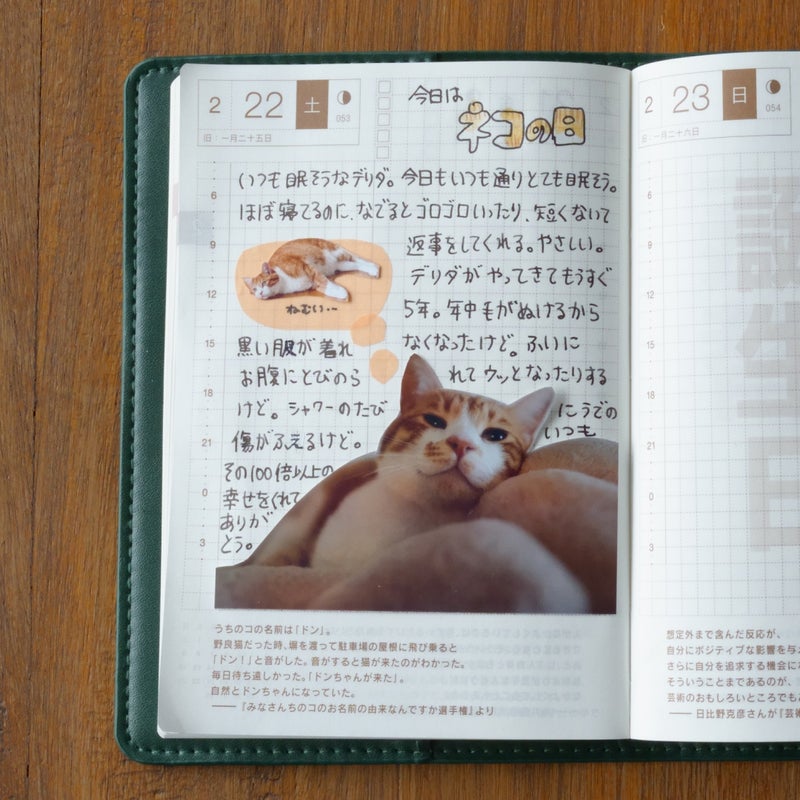 2 22 土 053
旧：一月二十五日
今日は
ネコの日
いつも眠そうなデリダ。今日もいつも通りとても眠そう。
ほぼ寝てるのに、なでるとゴロゴロいったり、短くないて
返事をしてくれる。やさしい。
デリダがやってきてもうすぐ
5年。年中毛がぬけるから
ねむい…
黒い服が着れ
なくなったけど。ふいに
お腹にとびのら
れてウッとなったりする
けど。シャワーのたび
にうでの
傷がふえるけど。
いつも
その100倍以上の
幸せをくれて
ありが
とう。
6
9
12
15
18
21
0
3
うちのコの名前は「ドン」。
野良猫だった時、塀を渡って駐車場の屋根に飛び乗ると
「ドン！」と音がした。音がすると猫が来たのがわかった。
毎日待ち遠しかった。「ドンちゃんが来た」。
自然とドンちゃんになっていた。
――『みなさんちのコのお名前の由来なんですか選手権』より
2 23 日 054
旧：一月二十六日
6
9
12
15
18
21
0
3
想定外まで含んだ反応が、
自分にポジティブな影響を与え
さらに自分を追求する機会に
そういうことまであるのが、
芸術のおもしろいところでも
――日比野克彦さんが『芸術